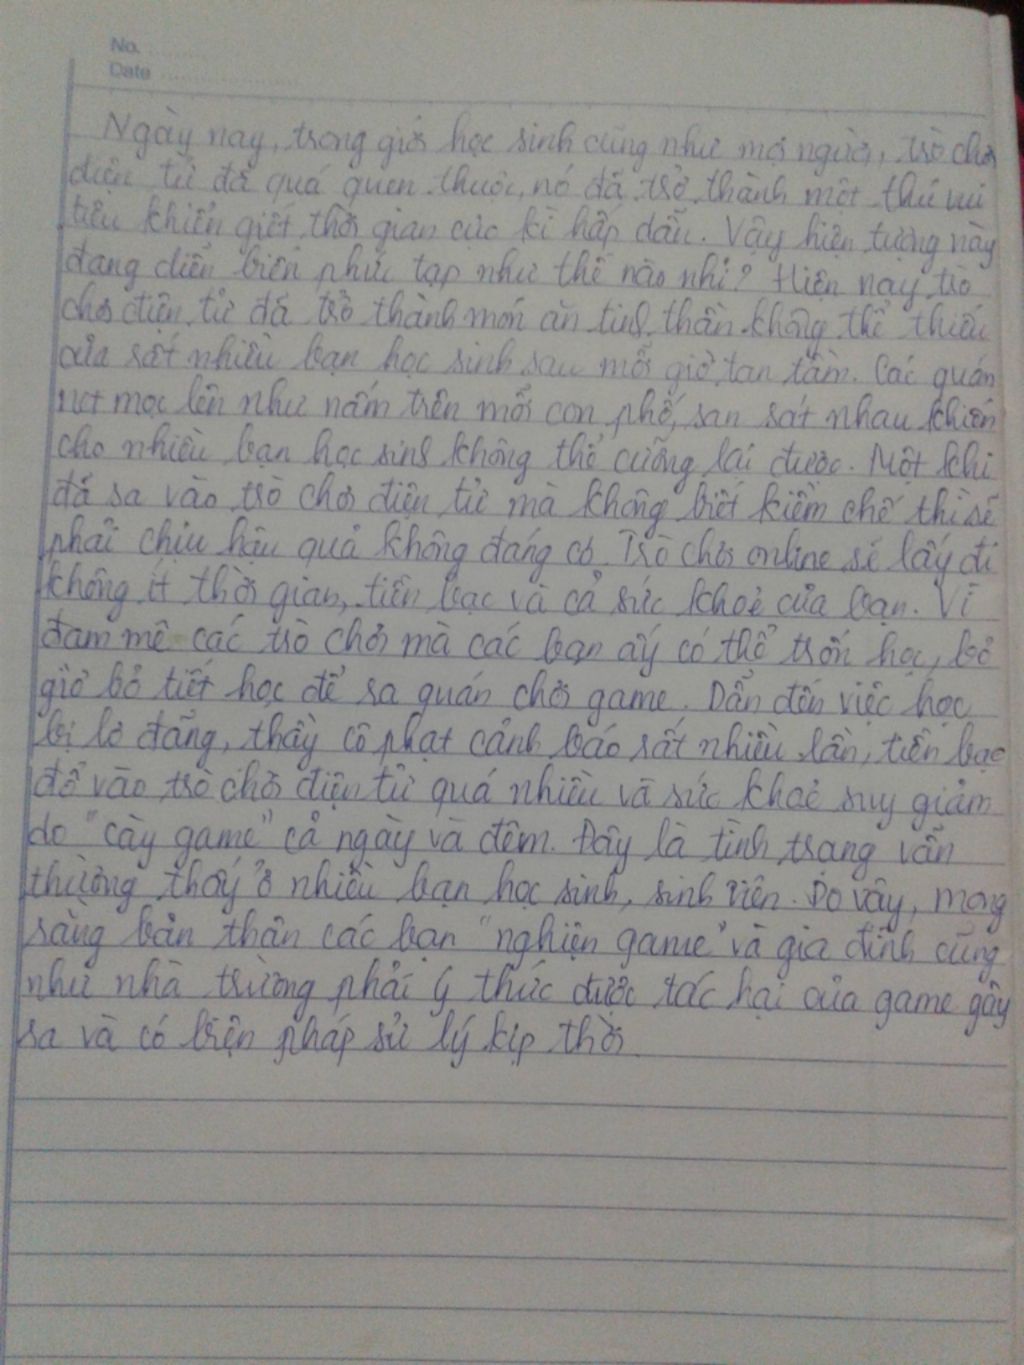 No.
Date
Ngày nay, trong giới học sinh cũng như mọi người, trò chơi
điện tử đã quá quen thuộc, nó đã trở thành một thú vui
tiêu khiển giết thời gian cực kì hấp dẫn. Vậy hiện tượng này
đang diễn biến phức tạp như thế nào nhỉ? Hiện nay, trò
chơi điện tử đã trở thành món ăn tinh thần không thể thiếu
của rất nhiều bạn học sinh sau mỗi giờ tan tầm. Các quán
net mọc lên như nấm trên mỗi con phố, san sát nhau khiến
cho nhiều bạn học sinh không thể cưỡng lại được. Một khi
đã sa vào trò chơi điện tử mà không biết kiềm chế thì sẽ
phải chịu hậu quả không đáng có. Trò chơi online sẽ lấy đi
không ít thời gian, tiền bạc và cả sức khoẻ của bạn. Vì
đam mê các trò chơi mà các bạn ấy có thể trốn học, bỏ
giờ bỏ tiết học để ra quán chơi game. Dẫn đến việc học
bị lơ đãng, thầy cô phạt cảnh báo rất nhiều lần, tiền bạc
đổ vào trò chơi điện tử quá nhiều và sức khoẻ suy giảm
do "cày game" cả ngày và đêm. Đây là tình trạng vẫn
thường thấy ở nhiều bạn học sinh, sinh viên. Do vậy, mong
rằng bản thân các bạn "nghiện game" và gia đình cũng
như nhà trường phải ý thức được tác hại của game gây
ra và có biện pháp sử lý kịp thời.